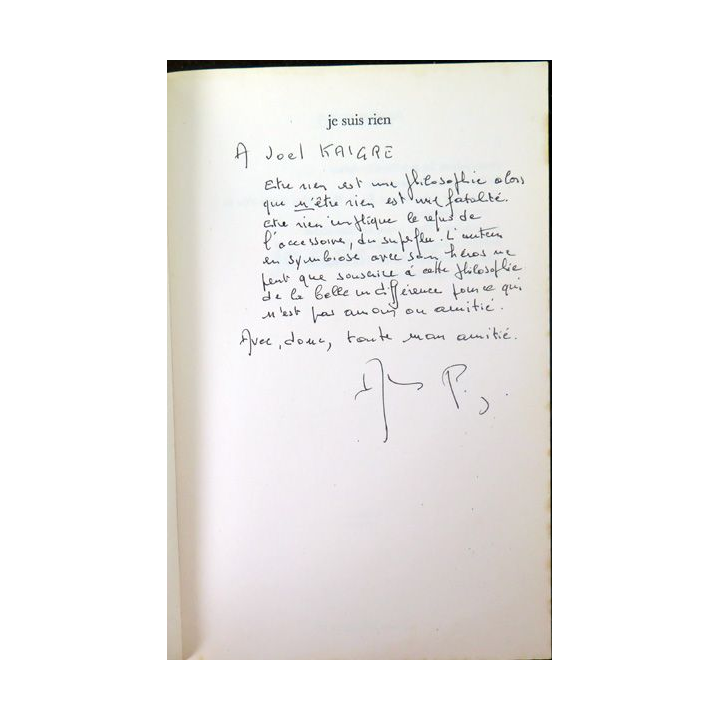 je suis rien
A Joel KAIGRE
Etre rien est une philosophie alors
que n'être rien est une fatalité.
Etre rien implique le refus de
l'accessoire, du superflu. L'auteur
en symbiose avec son héros ne
peut que souscrire à cette philosophie
de la belle indifférence pour ce qui
n'est pas amour ou amitié.
Avec, donc, toute mon amitié.